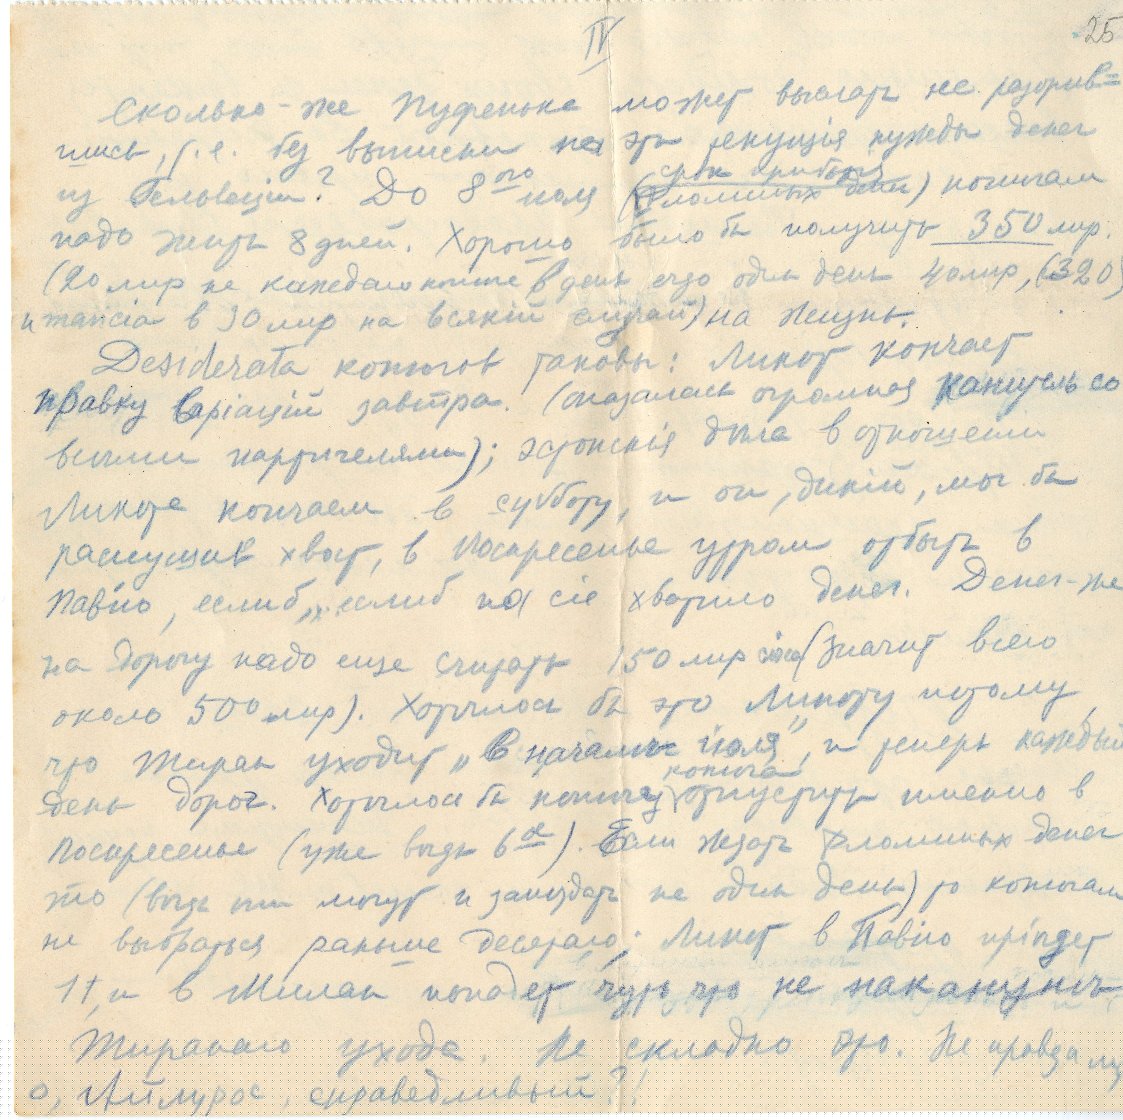 IV
25
Сколько-же Пуфенька может выслать не разорив=
шись, т.е. без выписки на эти текущiя нужды денег
из Гельвецiи? До 8ого июля (срок прибытiя
Фломиных денег) котичам
надо жить 8 дней. Хорошо было бы получить 350 лир.
(20 лир на каждаго котте в день, его один день 40 лир, (320)
и тансiа в 30 лир на всякiй случай) на жизнь.
Desiderata котов таковы: Линот кончает
правку варiацiй завтра. (оказалась огромная канитель со
всеми партичелями); эстонскiя дела в отношении
Линота кончаем в субботу, и он, дикiй, мог бы
распушив хвост, в Воскресенье утром отбыть в
Павiю, еслиб, еслиб на сiе хватило денег. Денег-же
на дорогу надо еще считать 150 лир (значит всего
около 500 лир). Хотелось бы это Линоту потому,
что Жиран уходит „в начале iюля", и теперь каждый
день дорог. Хотелось бы котичам отпустить именно в
Воскресенье (уже ведь 6ое). Если ждать Фломиных денег
то (ведь они могут и запоздать не один день) то котичам
не выбраться раньше десятаго; Линот в Павiю прiедет
11, и в Милан попадет чуть что не накануне
Жиранаго ухода. Не складно что. Не правда ли
о, Айлурос, справедливый?!